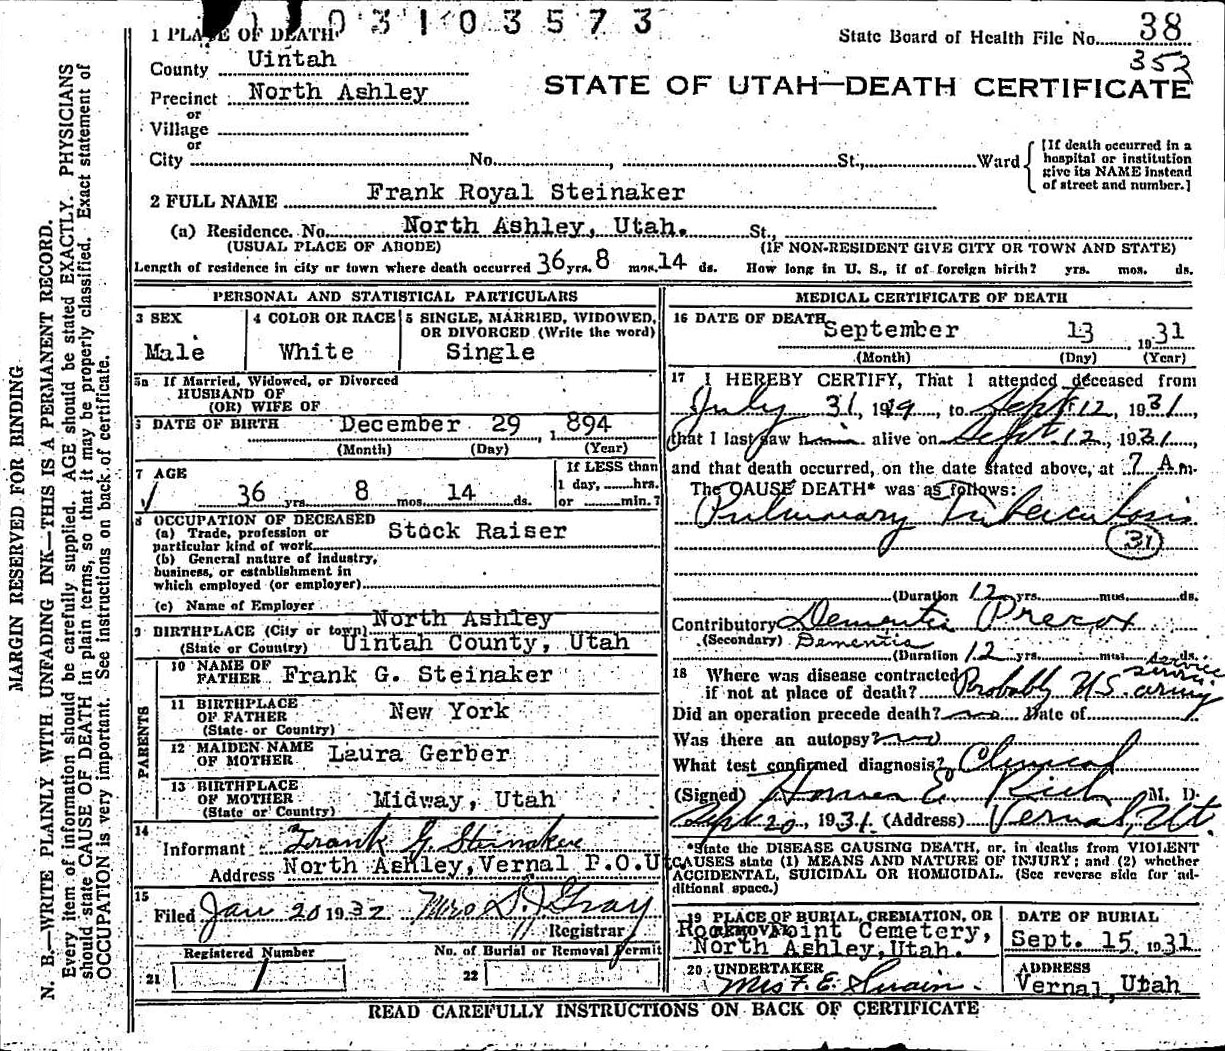 03103573
1 PLACE OF DEATH
State Board of Health File No. 38
352
County Uintah
STATE OF UTAH—DEATH CERTIFICATE
Precinct North Ashley
or
Village
or
City No. , St., Ward
[If death occurred in a hospital or institution give its NAME instead of street and number.]
2 FULL NAME Frank Royal Steinaker
(a) Residence. No. North Ashley, Utah. St.,
(USUAL PLACE OF ABODE) (IF NON-RESIDENT GIVE CITY OR TOWN AND STATE)
Length of residence in city or town where death occurred 36 yrs. 8 mos. 14 ds. How long in U. S., if of foreign birth? yrs. mos. ds.
PERSONAL AND STATISTICAL PARTICULARS
3 SEX
Male
4 COLOR OR RACE
White
5 SINGLE, MARRIED, WIDOWED,
OR DIVORCED (Write the word)
Single
5a If Married, Widowed, or Divorced
HUSBAND OF
(OR) WIFE OF
6 DATE OF BIRTH December 29 , 1 894
(Month) (Day) (Year)
7 AGE
36 yrs. 8 mos. 14 ds.
If LESS than
1 day, hrs.
or min.?
8 OCCUPATION OF DECEASED
(a) Trade, profession or
particular kind of work Stock Raiser
(b) General nature of industry,
business, or establishment in
which employed (or employer)
(c) Name of Employer
North Ashley
9 BIRTHPLACE (City or town)
(State or Country) Uintah County, Utah
PARENTS
10 NAME OF
FATHER Frank G. Steinaker
11 BIRTHPLACE
OF FATHER New York
(State or Country)
12 MAIDEN NAME
OF MOTHER Laura Gerber
13 BIRTHPLACE
OF MOTHER Midway, Utah
(State or Country)
14
Informant Frank G. Steinaker
Address North Ashley, Vernal P.O.Ut
15
Filed Jan 20 1932 Mrs D. J. Gray
Registrar
Registered Number
No. of Burial or Removal Permit
21 1
22
MEDICAL CERTIFICATE OF DEATH
16 DATE OF DEATH
September 13 , 1931
(Month) (Day) (Year)
17 I HEREBY CERTIFY, That I attended deceased from
July 31, 1919, to Sept 12, 1931,
that I last saw him alive on Sept. 12, 1931,
and that death occurred, on the date stated above, at 7 A.m.
The CAUSE DEATH* was as follows:
Pulmonary Tuberculosis
31
(Duration 12 yrs. mos. ds.
Contributory Dementia Precox
(Secondary) Dementia
(Duration 12 yrs. mos. ds.
18 Where was disease contracted
if not at place of death? Probably U.S. army service
service
Did an operation precede death? no Date of
Was there an autopsy? no
What test confirmed diagnosis? Clinical
(Signed) Homer E. Rich M. D.
Sept 20, 1931. (Address) Vernal, Ut.
*State the DISEASE CAUSING DEATH, or, in deaths from VIOLENT
CAUSES state (1) MEANS AND NATURE OF INJURY; and (2) whether
ACCIDENTAL, SUICIDAL OR HOMICIDAL. (See reverse side for ad-
ditional space.)
19 PLACE OF BURIAL, CREMATION, OR
REMOVAL
Rock Point Cemetery,
North Ashley, Utah.
DATE OF BURIAL
Sept. 15 1931
20 UNDERTAKER
Mrs F. E. Swain.
ADDRESS
Vernal, Utah
READ CAREFULLY INSTRUCTIONS ON BACK OF CERTIFICATE
MARGIN RESERVED FOR BINDING
N. B.—WRITE PLAINLY WITH UNFADING INK—THIS IS A PERMANENT RECORD.
Every item of information should be carefully supplied. AGE should be stated EXACTLY. PHYSICIANS
should state CAUSE OF DEATH in plain terms, so that it may be properly classified. Exact statement of
OCCUPATION is very important. See instructions on back of certificate.